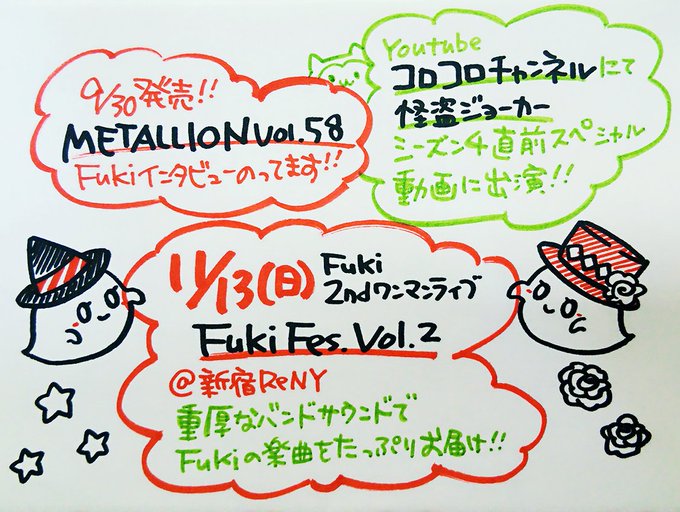 9/30発売!!
METALLION vol.58
Fukiインタビューのってます!!
Youtube
コロコロチャンネルにて
怪盗ジョーカー
シーズン4直前スペシャル
動画に出演!!
11/13(日)
Fuki
2ndワンマンライブ
Fuki Fes. Vol.2
@新宿ReNY
重厚なバンドサウンドで
Fukiの楽曲をたっぷりお届け!!